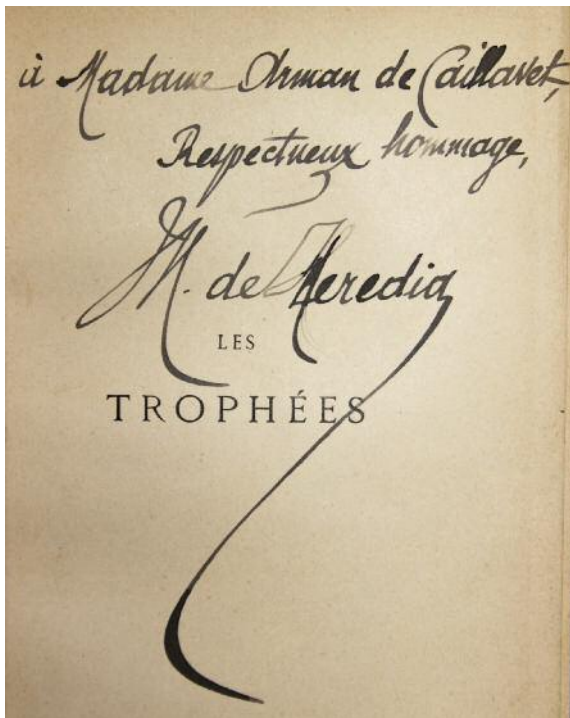 à Madame Arman de Caillavet,
Respectueux hommage,
JM. de Heredia
LES
TROPHÉES